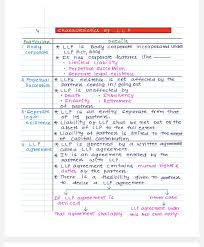 4 Characteristics of LLP
Particulars Details
1. Body corporate
→ LLP is Body corporate incorporated under
LLP Act, 2008
→ It has corporate features like -
- Limited liability
- Perpetual succession
- Separate legal existence
2. Perpetual Succession
→ LLP's existence is not affected by the
partners coming in / going out
→ LLP is unaffected by
- Death - Insolvency
- Insanity - Retirement
of partners
3. Separate legal existence
→ LLP is an entity separate from that
of its partners.
→ Liability of LLP shall be met out of the
assets of LLP to the full extent
→ Liability of partners is limited to the
of capital contribution.
→ LLP is governed by a written agreement
called LLP agreement
→ It is an agreement entered by the
partners with LLP
→ LLP agreement contains mutual rights &
duties of the partners.
→ There is a flexibility given to partners
to devise a LLP agreement
If LLP agreement is
devised
that agreement shall apply